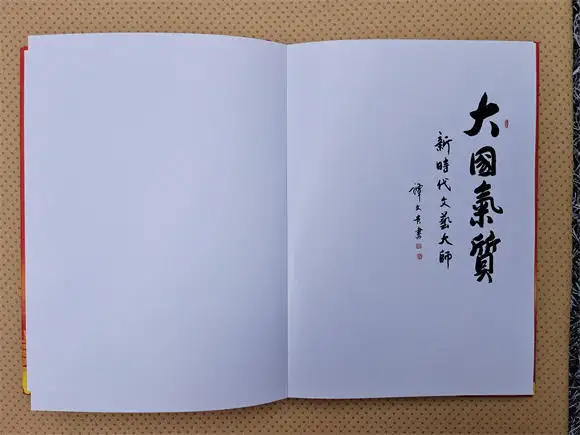 大國氣質
新時代文藝大師